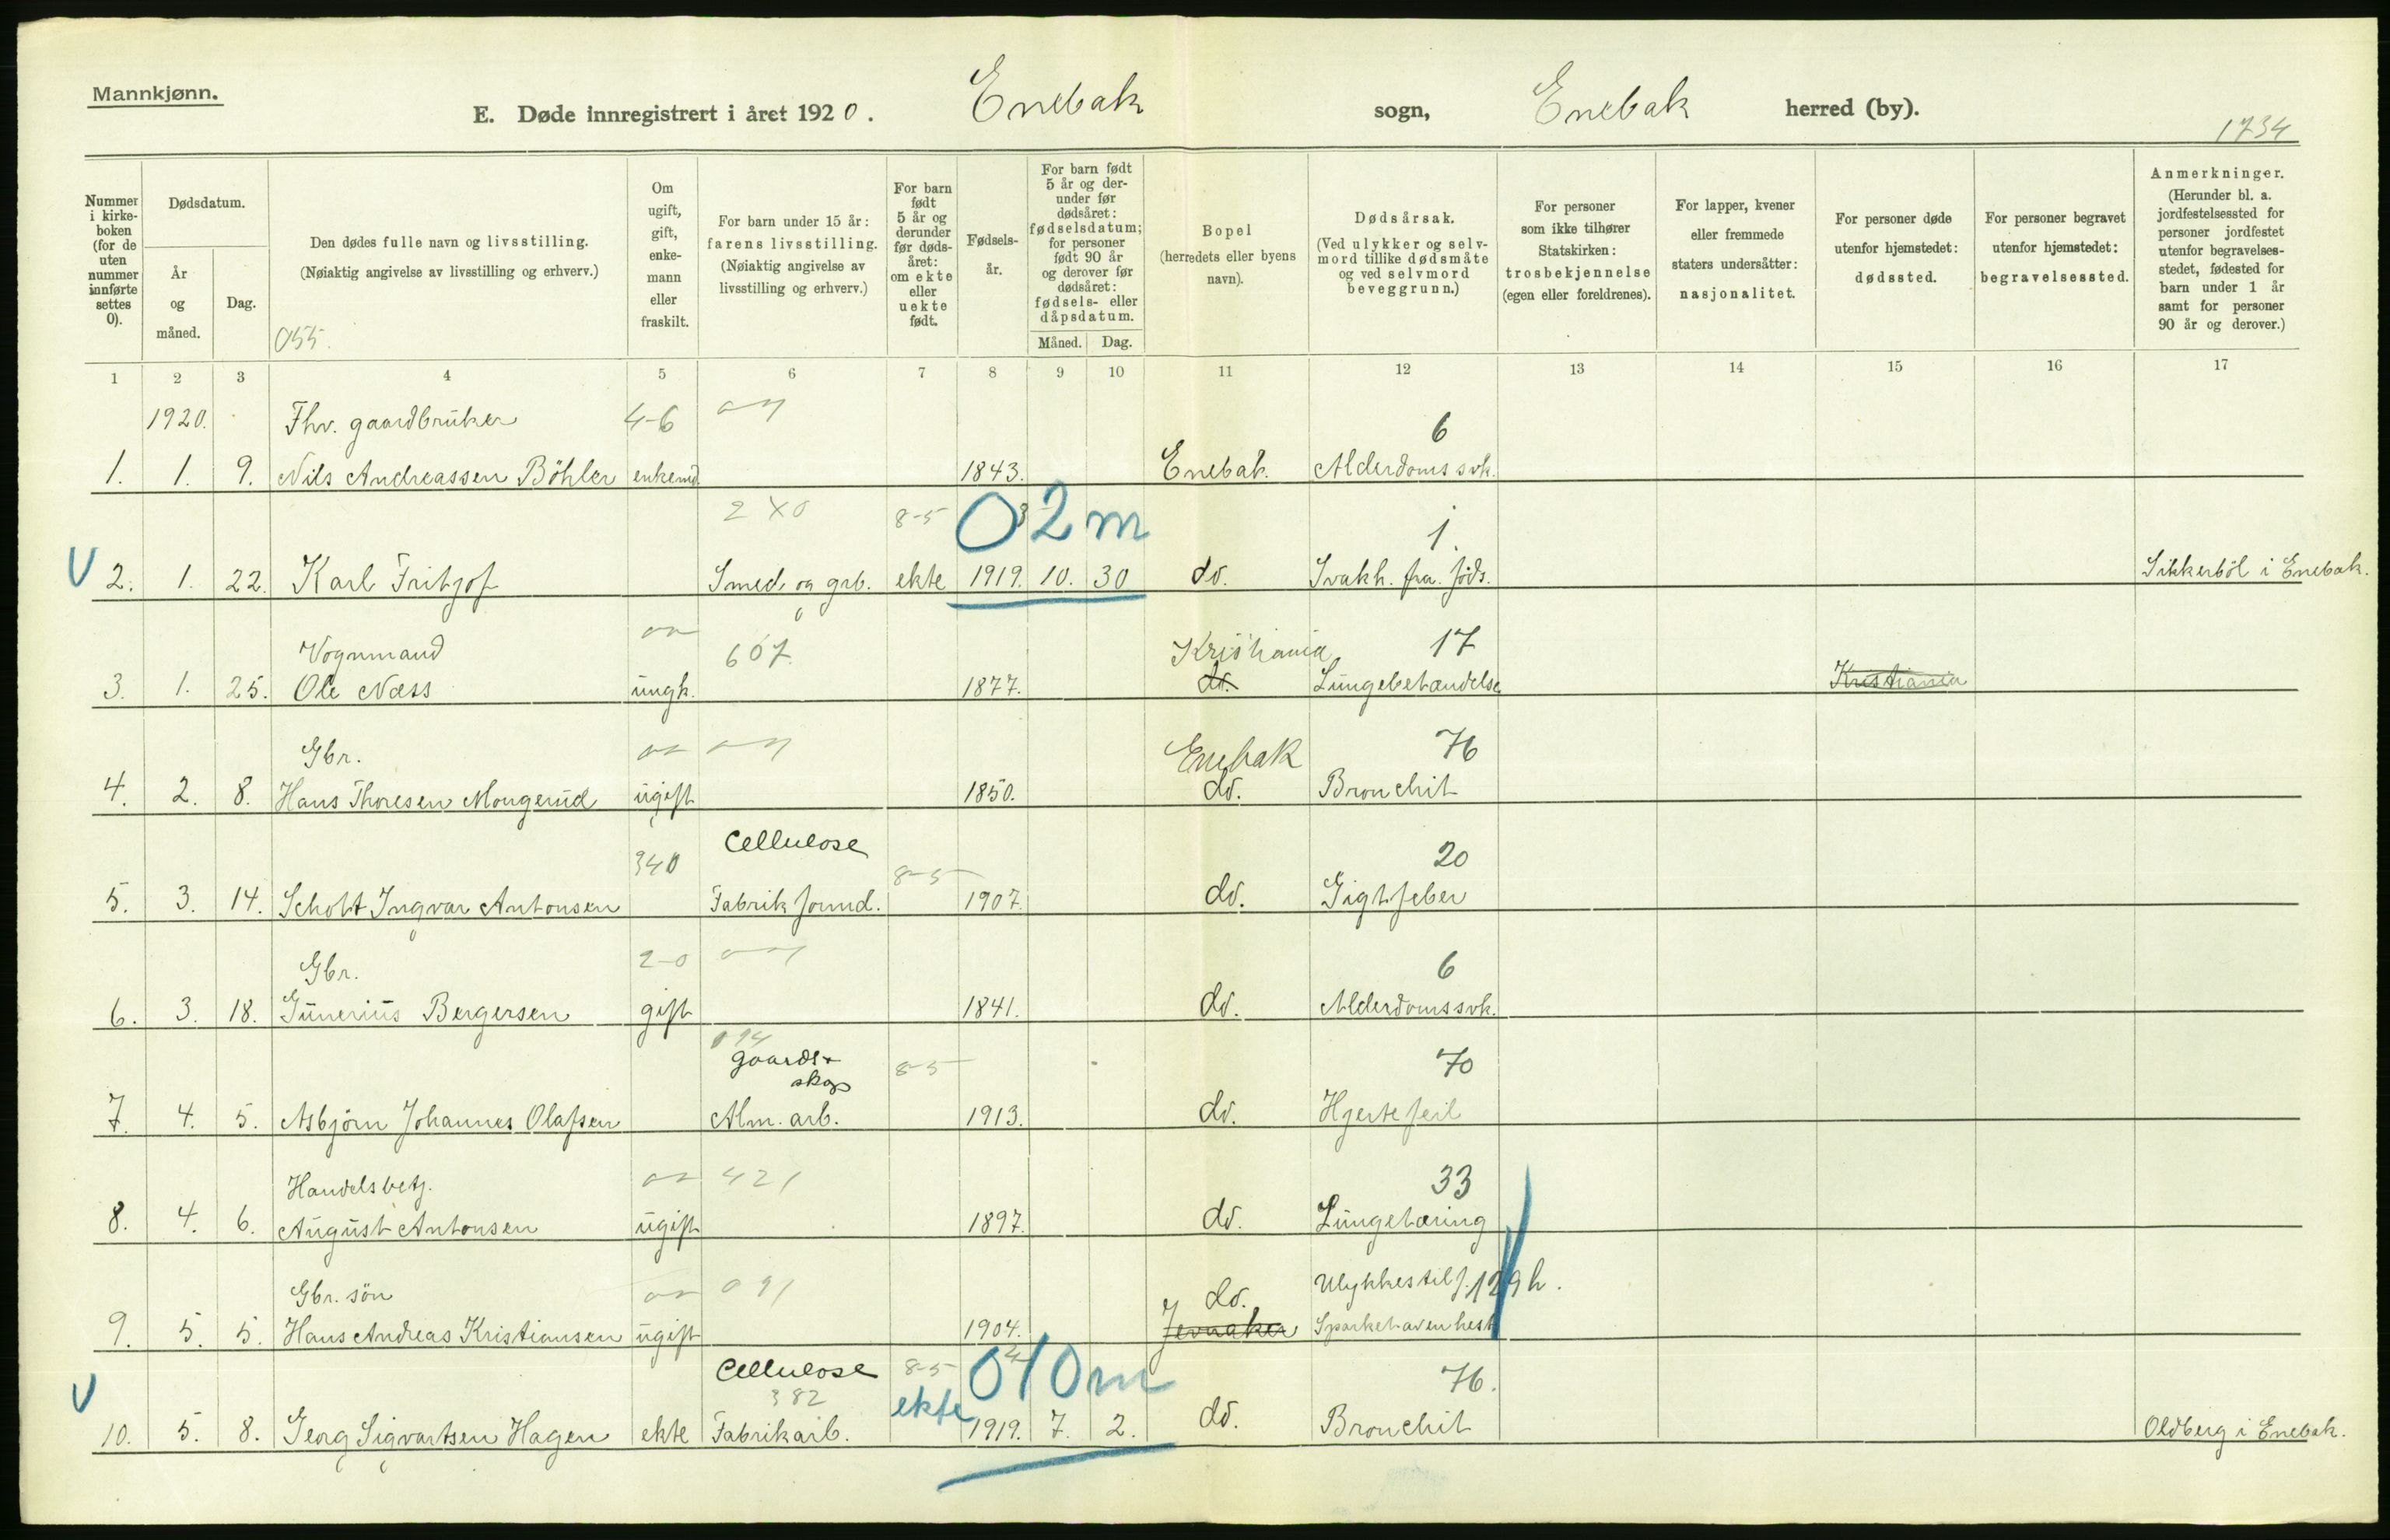 Mannkjønn.
E. Døde innregistrert i året 1920. Enebak sogn, Enebak herred (by).
1734
Nummer i kirke-boken (for de uten nummer innførte settes 0).
Dødsdatum.
År og måned.
Dag.
Den dødes fulle navn og livsstilling.
(Nøiaktig angivelse av livsstilling og erhverv.)
055.
Om ugift, gift, enke-mann eller fraskilt.
For barn under 15 år: farens livsstilling.
(Nøiaktig angivelse av livsstilling og erhverv.)
For barn født 5 år og derunder før døds-året: om ekte eller uekte født.
Fødsels-år.
For barn født 5 år og der-under før dødsåret: fødselsdatum; for personer født 90 år og derover før dødsåret: fødsels- eller dåpsdatum.
Måned. Dag.
Bopel (herredets eller byens navn).
Dødsårsak.
(Ved ulykker og selv-mord tillike dødsmåte og ved selvmord beveggrunn.)
For personer som ikke tilhører Statskirken: trosbekjennelse (egen eller foreldrenes).
For lapper, kvener eller fremmede staters undersåtter: nasjonalitet.
For personer døde utenfor hjemstedet: dødssted.
For personer begravet utenfor hjemstedet: begravelsessted.
Anmerkninger.
(Herunder bl. a. jordfestelsessted for personer jordfestet utenfor begravelses-stedet, fødested for barn under 1 år samt for personer 90 år og derover.)
1 2 3 4 5 6 7 8 9 10 11 12 13 14 15 16 17
1920. Fhv. gaardbruker 4-6 6
1. 1. 9. Nils Andreassen Böhler enkemd. 1843. Enebak. Alderdomssvk.
2 X0 8-5 02m 1.
V 2. 1. 22. Karl Fritjof Smed og grb. ekte 1919. 10. 30 do. Svakh. fra föds. Sikkerböl i Enebak.
Vognmand 607. Kristiania 17
3. 1. 25. Ole Næss ungk. 1877. do. Lungebetændelse Kristiania
Gbr. Enebak 76
4. 2. 8. Hans Thoresen Mougerud ugift 1850. do. Bronchit
340 Cellulose 8-5 20
5. 3. 14. Scholt Ingvar Antonsen Fabrikformd. 1907. do. Gigtfeber
Gbr. 2-0 6
6. 3. 18. Gunerius Bergersen gift 1841. do. Alderdomssvk.
094 gaards + skogs 8-5 70
7. 4. 5. Asbjörn Johannes Olafsen Alm. arb. 1913. do. Hjertefeil
Handelsbetj. 421 33
8. 4. 6. August Antonsen ugift 1897. do. Lungetæring
Gbr. sön 091 do. Ulykkestilf. 129h.
9. 5. 5. Hans Andreas Kristiansen ugift 1904. Jevnaker Sparket av en hest
Cellulose 8-5 010m 76.
382 ekte
V 10. 5. 8. Georg Sigvartsen Hagen ekte Fabrikarb. 1919. 7. 2. do. Bronchit Oldberg i Enebak.